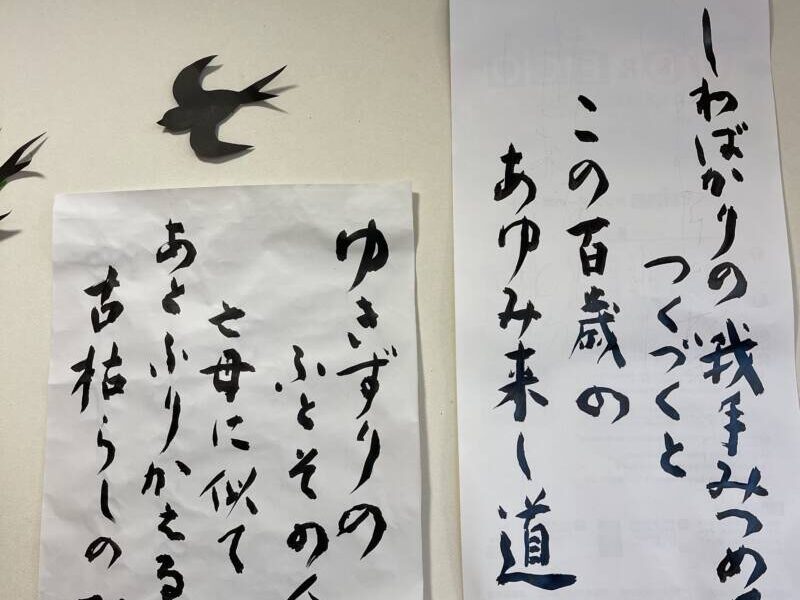 しわばかりの我手みつめ
つくづくと
この百歳の
あゆみ来し道
ゆきずりの
ふとその
亡母に似て
あとふりかえる
古枯らしの